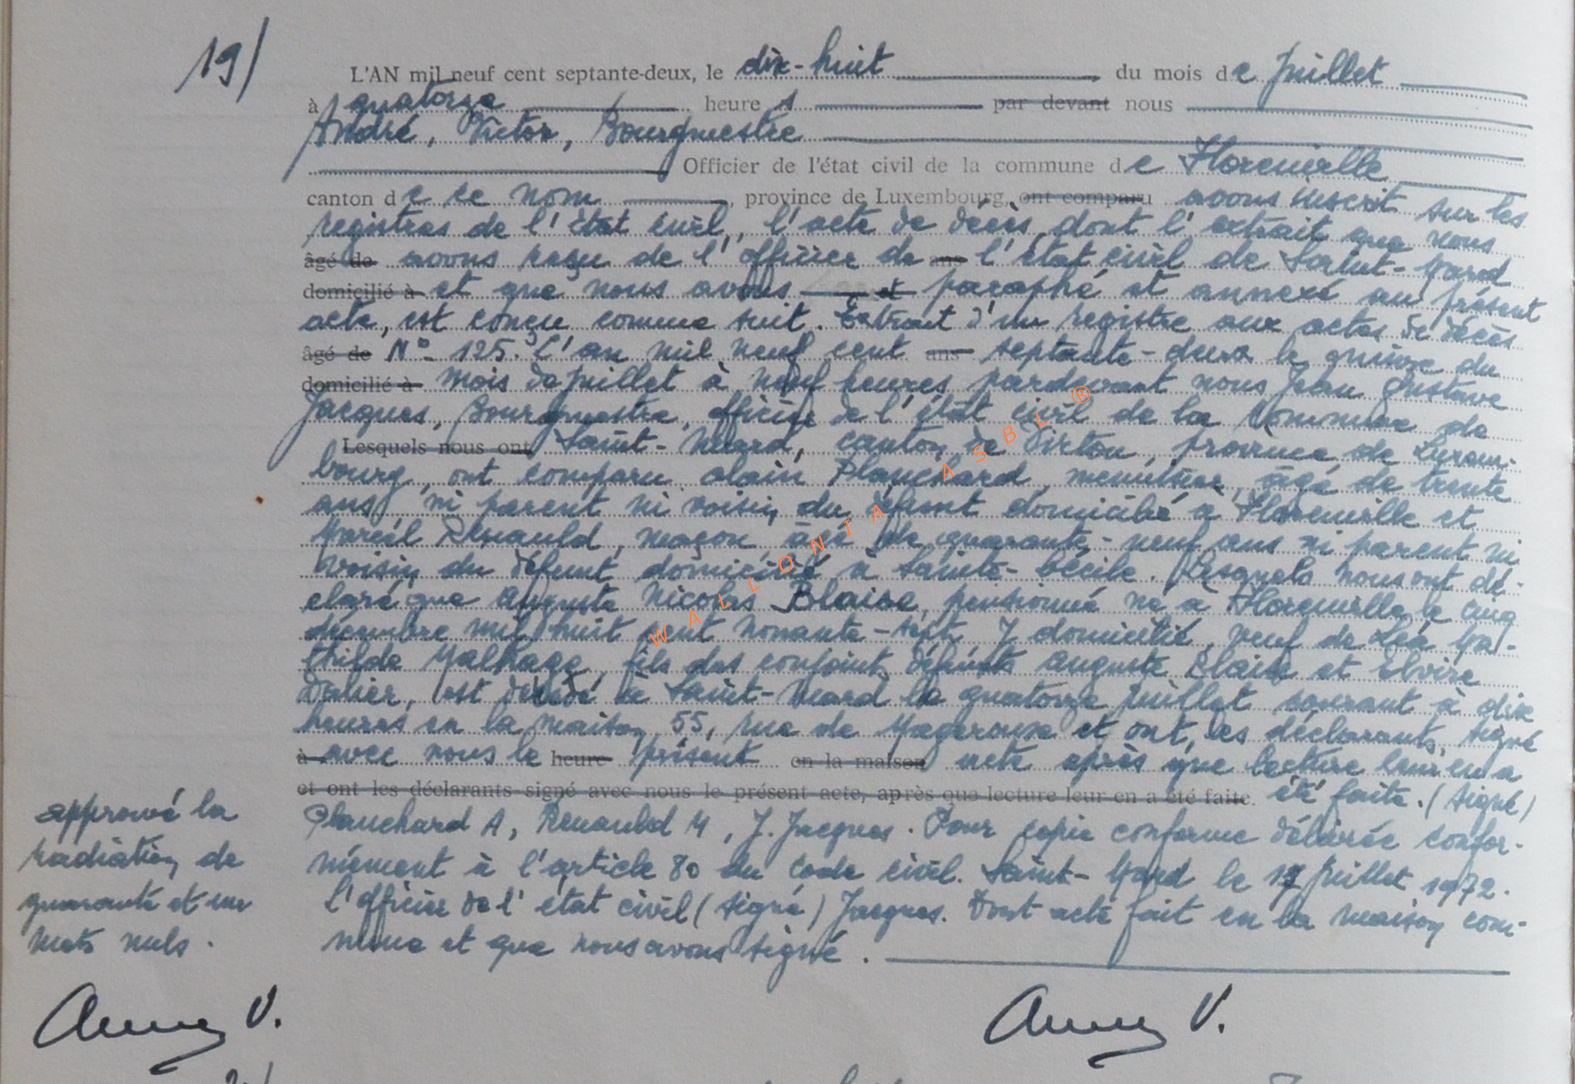 19/
L'AN mil neuf cent septante-deux, le dix-huit du mois de Juillet
à quatorze heures par devant nous
André, Victor, Bourgmestre
Officier de l'état civil de la commune de Florenville
canton de ce nom, province de Luxembourg, ont comparu avons inscrit sur les
registres de l'état civil, l'acte de décès dont l'extrait que nous
âgé de avons reçu de l'officier de ans l'état civil de Saint-Mard
domicilié à et que nous avons et paraphé et annexé au présent
acte, est conçu comme suit. Extrait d'un registre aux actes de décès
âgé de N° 125. L'an mil neuf cent ans septante-deux le quinze du
domicilié à mois de juillet à neuf heures pardevant nous Jean Gustave
Jacques, Bourgmestre, officier de l'état civil de la Commune de
Lesquels nous ont Saint-Mard, canton de Virton, province de Luxem-
bourg, ont comparu Alain Planchard, menuisier, âgé de trente
ans ni parent ni voisin du défunt domicilié à Florenville et
Marcel Renauld, maçon âgé de quarante-neuf ans ni parent ni
voisin du défunt domicilié à Sainte-Cécile. Lesquels nous ont dé-
claré que Auguste Nicolas Blaise, pensionné né à Florenville le cinq
décembre mil huit cent nonante-sept y domicilié, veuf de Léa Ma-
thilde fils des conjoints défunts Auguste Blaise et Elvire
Didier, est décédé à Saint-Mard le quatorze juillet courant à dix
heures en la maison 55, rue de Mageroux et ont, les déclarants, signé
à avec nous le heure présent en la maison acte après que lecture leur en a
et ont les déclarants signé avec nous le présent acte, après que lecture leur en a été faite. été faite. (signé)
Planchard A, Renauld M, J. Jacques. Pour copie conforme délivrée confor-
mément à l'article 80 du Code civil. Saint-Mard le 17 Juillet 1972.
l'officier de l'état civil (signé) Jacques. Dont acte fait en la maison com-
mune et que nous avons signé.
approuvé la
radiation de
quarante et un
mots nuls.
V.
V.
WALLONIA ASBL ®